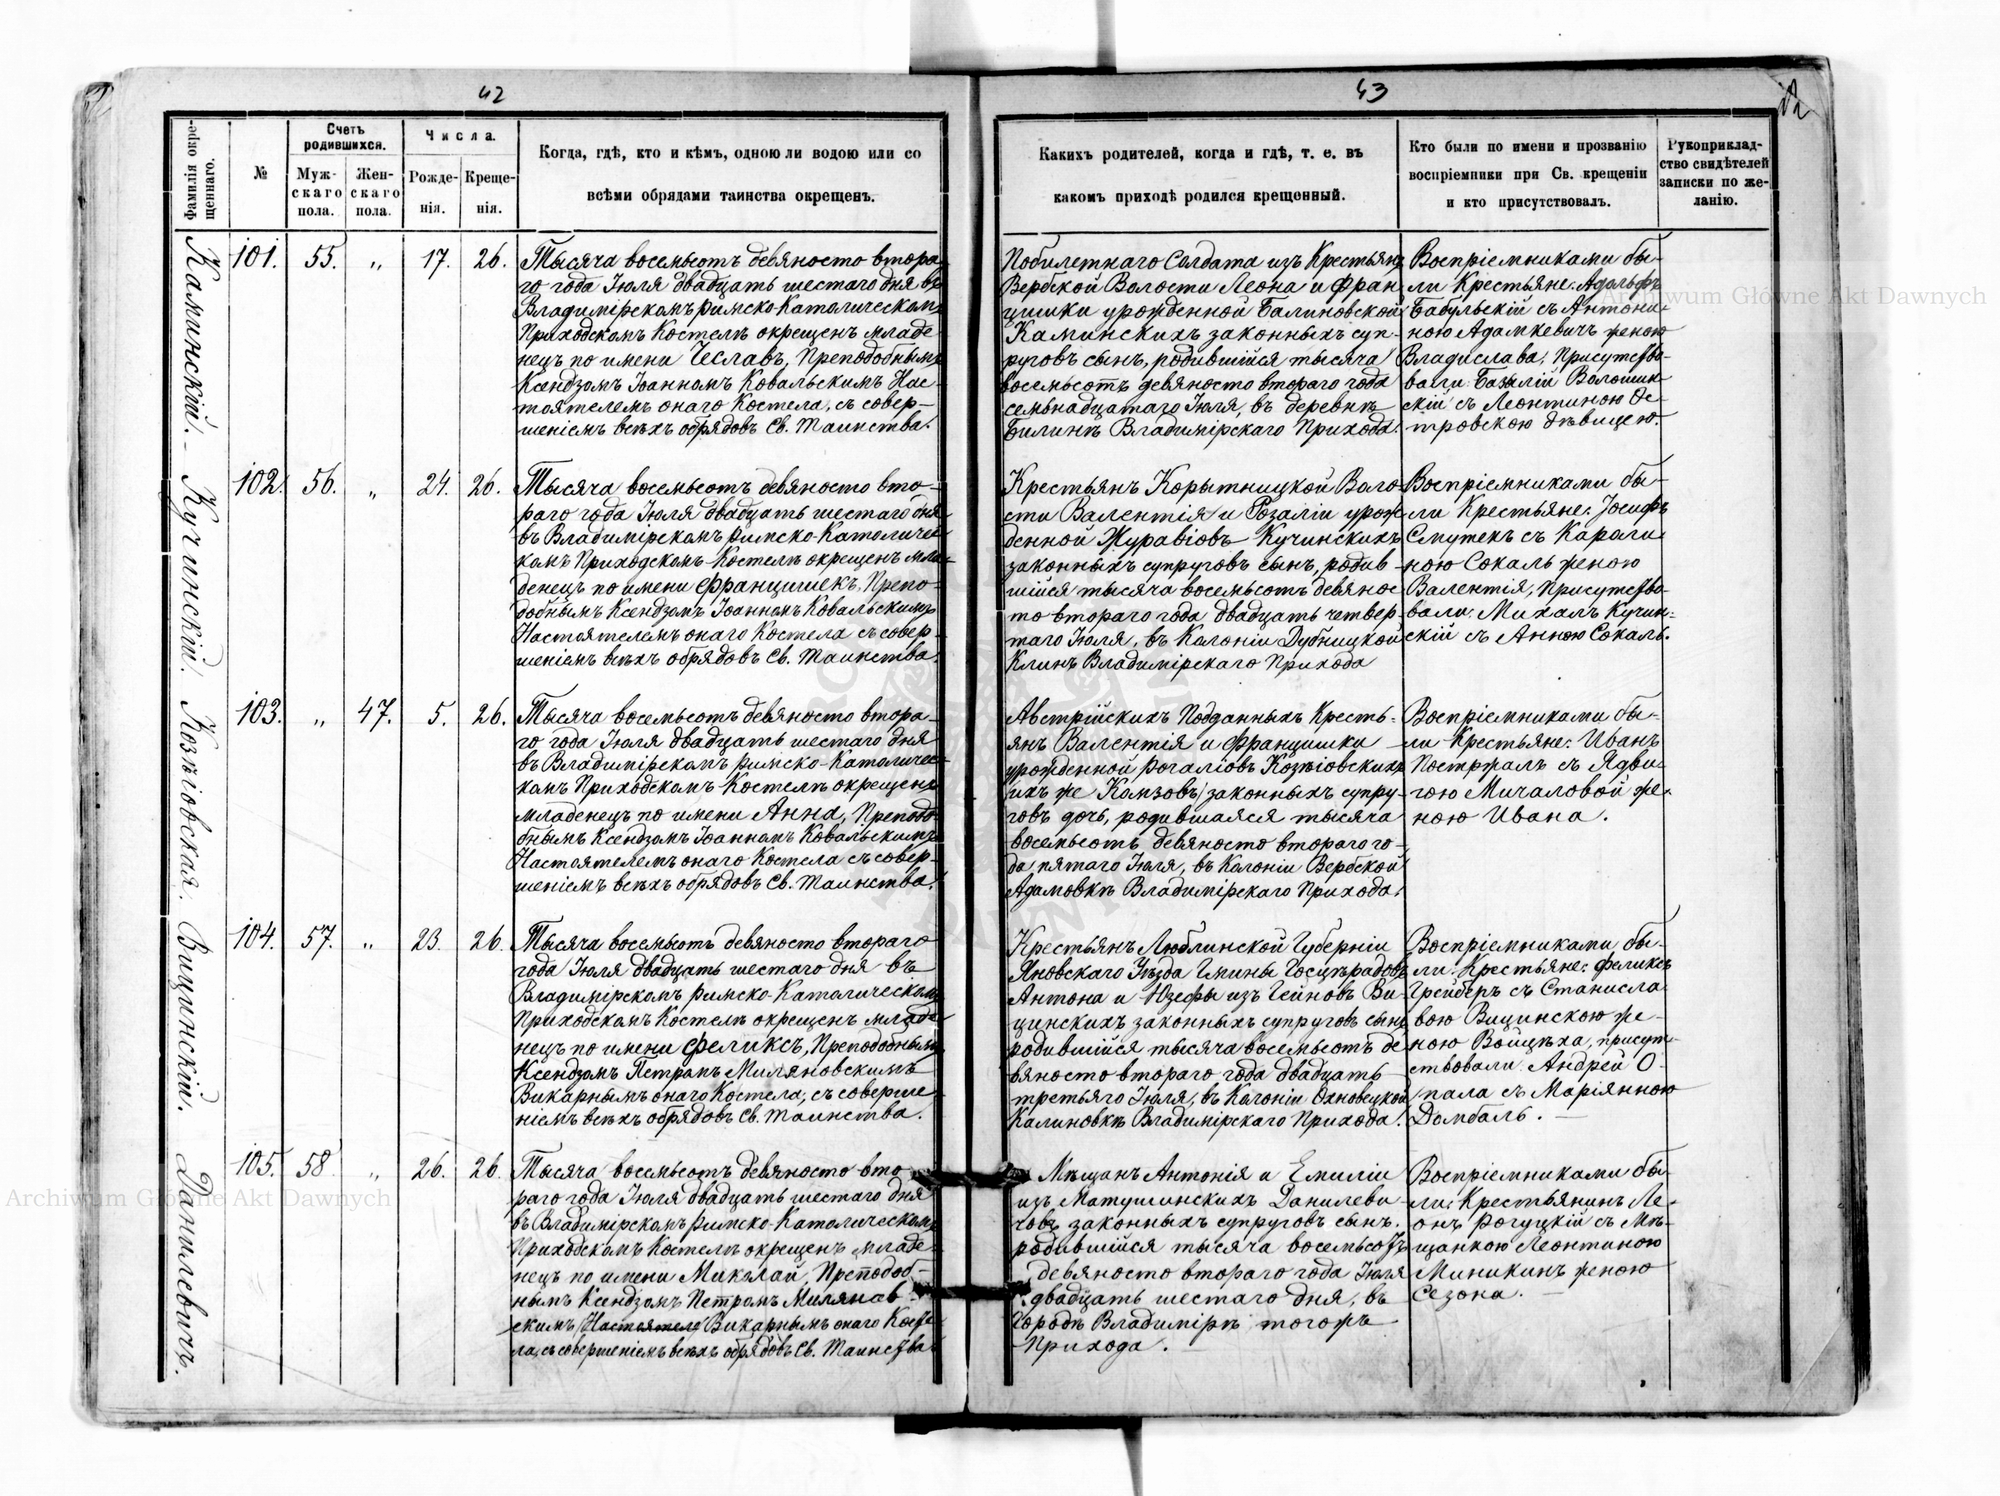 42
Фамилія окре-
щеннаго.
№
Счетъ
родившихся.
Муж-
скаго
пола.
Жен-
скаго
пола.
Числа.
Рожде-
нія.
Креще-
нія.
Когда, гдѣ, кто и кѣмъ, одною ли водою или со
всѣми обрядами таинства окрещенъ.
Каминскій.
101. 55. „ 17. 26.
Тысяча восемьсотъ девяносто второ-
го года Іюля двадцать шестаго дня въ
Владимірскомъ Римско-Католическомъ
Приходскомъ Костелѣ окрещенъ младе
нецъ по имени Чеславъ, Преподобнымъ
Ксендзомъ Іоанномъ Ковальскимъ Нас-
тоятелемъ онаго Костела, съ совер-
шеніемъ всѣхъ обрядовъ Св. Таинства.
Кучинскій.
102. 56. „ 24. 26.
Тысяча восемьсотъ девяносто вто-
раго года Іюля двадцать шестаго дня
въ Владимірскомъ Римско-Католичес-
комъ Приходскомъ Костелѣ окрещенъ мла-
денецъ по имени Францишекъ, Препо-
добнымъ Ксендзомъ Іоанномъ Ковальскимъ
Настоятелемъ онаго Костела съ совер-
шеніемъ всѣхъ обрядовъ Св. Таинства.
Козѣіовская.
103. „ 47. 5. 26.
Тысяча восемьсотъ девяносто втора-
го года Іюля двадцать шестаго дня
въ Владимірскомъ Римско-Католичес-
комъ Приходскомъ Костелѣ окрещенъ
младенецъ по имени Анна, Преподо-
бнымъ Ксендзомъ Іоанномъ Ковальскимъ
Настоятелемъ онаго Костела съ совер-
шеніемъ всѣхъ обрядовъ Св. Таинства.
Вицинскій.
104. 57. „ 23. 26.
Тысяча восемьсотъ девяносто втораго
года Іюля двадцать шестаго дня въ
Владимірскомъ Римско-Католическомъ
Приходскомъ Костелѣ окрещенъ младе
нецъ по имени Феликсъ, Преподобнымъ
Ксендзомъ Петромъ Миляновскимъ
Викарнымъ онаго Костела, съ соверше-
ніемъ всѣхъ обрядовъ Св. Таинства.
Данилевичъ.
105. 58 „ 26. 26
Тысяча восемьсотъ девяносто вто
раго года Іюля двадцать шестаго дня
въ Владимірскомъ Римско-Католическомъ
Приходскомъ Костелѣ окрещенъ младе-
нецъ по имени Миколай, Преподоб-
нымъ Ксендзомъ Петромъ Милянов-
скимъ Настоятеле Викарнымъ онаго Косте
ла, съ совершеніемъ всѣхъ обрядовъ Св. Таинства
43
Какихъ родителей, когда и гдѣ, т. е. въ
какомъ приходѣ родился крещенный.
Кто были по имени и прозванію
воспріемники при Св. крещеніи
и кто присутствовалъ.
Рукоприклад-
ство свидѣтелей
записки по же-
ланію.
Побилетнаго Солдата изъ Крестьянъ
Вербской Волости Леона и Фран
цишки урожденной Балиновской
Каминскихъ законныхъ суп-
руговъ сынъ, родившійся тысяча
восемьсотъ девяносто втораго года
семьнадцатаго Іюля, въ деревнѣ
Билинѣ Владимірскаго Прихода.
Воспріемниками бы-
ли Крестьяне: Адольфъ
Бабульскій съ Антони-
ною Адамкевичъ женою
Владислава. Присутство-
вали: Базылій Волошин-
скій съ Леонтиною Ос-
тровскою дѣвицею.
Крестьянъ Корытницкой Воло-
сти Валентія и Розаліи урож-
денной Журавіовъ Кучинскихъ
законныхъ супруговъ сынъ, родив-
шійся тысяча восемьсотъ девянос
то втораго года двадцать четвер-
таго Іюля, въ Колоніи Дубницкой
Клинъ Владимірскаго Прихода
Воспріемниками бы-
ли Крестьяне: Іосифъ
Смутекъ съ Кароли
ною Сокаль женою
Валентія, Присутство-
вали: Михалъ Кучин-
скій съ Анною Сокаль.
Австрійскихъ Подданныхъ Кресть-
янъ Валентія и Францишки
урожденной Рогаліовъ Козѣіовскихъ
ихъ же Комзовъ законныхъ супру-
говъ дочь, родившаяся тысяча
восемьсотъ девяносто втораго го-
да, пятаго Іюля, въ Колоніи Вербской
Адамовкѣ Владимірскаго Прихода.
Воспріемниками бы-
ли Крестьяне: Иванъ
Постржалъ съ Ядви-
гою Мичаловой же-
ною Ивана.
Крестьянъ Люблинской Губерніи
Яновскаго Уѣзда Гмины Госцѣрадовъ
Антона и Юзефы изъ Гейновъ Ви-
цинскихъ законныхъ супруговъ сынъ
родившійся тысяча восемьсотъ де
вяносто втораго года двадцать
третьяго Іюля, въ Колоніи Охновецкой
Калиновкѣ Владимірскаго Прихода.
Воспріемниками бы-
ли: Крестьяне: Феликсъ
Грейберъ съ Станисла
вою Вицинскою же-
ною Войцѣха, присут-
ствовали: Андрей О-
пала съ Маріянною
Домбаль.
Мѣщанъ Антонія и Емиліи
изъ Матушинскихъ Данилеви-
човъ законныхъ супруговъ сынъ.
родившійся тысяча восемьсотъ
девяносто втораго года Іюля
двадцать шестаго дня, въ
Городѣ Владимірѣ тогожъ
Прихода.
Воспріемниками бы-
ли: Крестьянинъ Ле-
онъ Рогуцкій съ Мѣ-
щанкою Леонтиною
Миникинъ женою
Сезона.
Archiwum Główne Akt Dawnych
Archiwum Główne Akt Dawnych